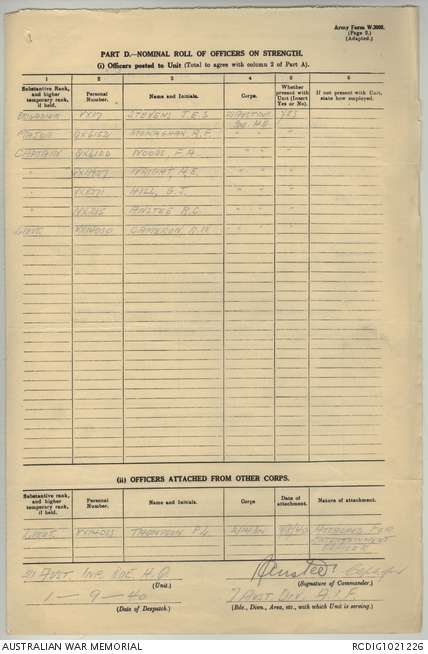 Army Form W.3008.
(Page 2.)
(Adapted.)
PART D.—NOMINAL ROLL OF OFFICERS ON STRENGTH.
(i) Officers posted to Unit (Total to agree with column 2 of Part A).
1 2 3 4 5 6
Substantive Rank, and higher temporary rank, if held. Personal Number. Name and Initials. Corps. Whether present with Unit (Insert Yes or No). If not present with Unit, state how employed.
BRIGADIER VX17 STEVENS J.E.S YES
MAJOR QX6152 MONAGHAN R.F. " " "
CAPTAIN QX6100 WOODS F.A. " " "
" WRIGHT, H.E. " " "
" HILL, G.J. " " "
" ANSTEE R.C. " " "
LIEUT. CAMERON, A.W. " " "
(ii) OFFICERS ATTACHED FROM OTHER CORPS.
Substantive rank, and higher temporary rank, if held. Personal Number. Name and Initials. Corps Date of attachment. Nature of attachment.
LIEUT. THOMPSON P.L ATTACHED FOR
ENTERTAINMENT
OFFICER
21 AUST INF BDE H.Q
(Unit.) (Signature of Commander.)
1 – 9 – 40 7 AUST DIV. A.I.F.
(Date of Despatch.) (Bde., Divn., Area, etc., with which Unit is serving.)
AUSTRALIAN WAR MEMORIAL RCDIG1021226